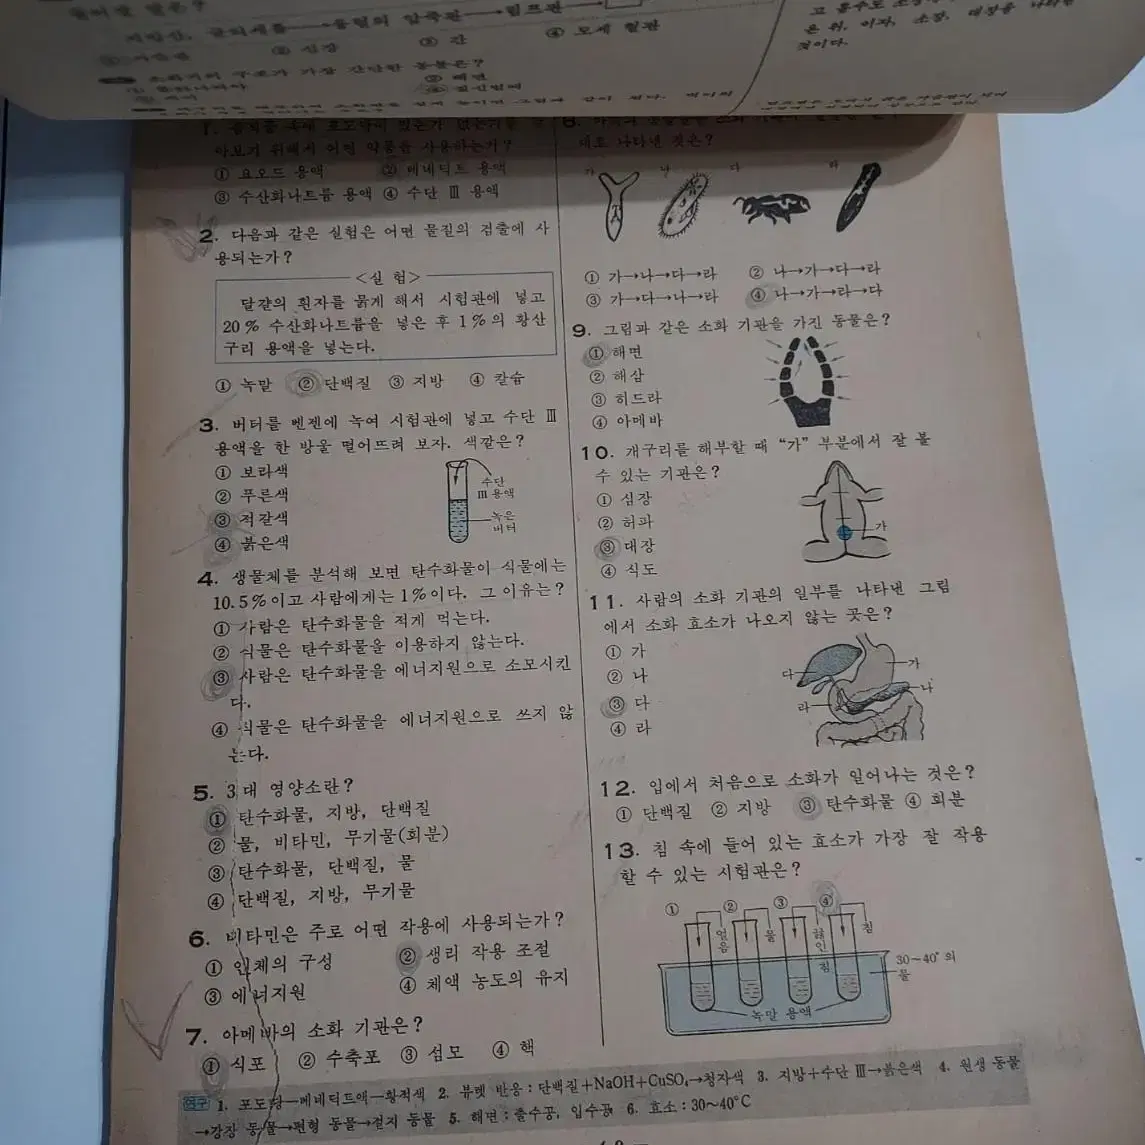 ④ 모세 혈관
② 심장
③ 간
소화기의 구조가 가장 간단한 동물은?
② 해면
것이다.
① 요오드 용액 ② 베네딕트 용액
③ 수산화나트륨 용액 ④ 수단 Ⅲ 용액
2. 다음과 같은 실험은 어떤 물질의 검출에 사
용되는가?
<실 험>
달걀의 흰자를 묽게 해서 시험관에 넣고
20% 수산화나트륨을 넣은 후 1%의 황산
구리 용액을 넣는다.
① 녹말 ② 단백질 ③ 지방 ④ 칼슘
3. 버터를 벤젠에 녹여 시험관에 넣고 수단 Ⅲ
용액을 한 방울 떨어뜨려 보자. 색깔은?
① 보라색
② 푸른색
③ 적갈색
④ 붉은색
수단
Ⅲ 용액
녹은
버터
4. 생물체를 분석해 보면 탄수화물이 식물에는
10.5%이고 사람에게는 1%이다. 그 이유는?
① 사람은 탄수화물을 적게 먹는다.
② 식물은 탄수화물을 이용하지 않는다.
③ 사람은 탄수화물을 에너지원으로 소모시킨
다.
④ 식물은 탄수화물을 에너지원으로 쓰지 않
는다.
5. 3대 영양소란?
① 탄수화물, 지방, 단백질
② 물, 비타민, 무기물(회분)
③ 탄수화물, 단백질, 물
④ 단백질, 지방, 무기물
6. 비타민은 주로 어떤 작용에 사용되는가?
① 인체의 구성 ② 생리 작용 조절
③ 에너지원 ④ 체액 농도의 유지
7. 아메바의 소화 기관은?
① 식포 ② 수축포 ③ 섬모 ④ 핵
대로 나타낸 것은?
가 나 다 라
① 가→나→다→라 ② 나→가→다→라
③ 가→다→나→라 ④ 나→가→라→다
9. 그림과 같은 소화 기관을 가진 동물은?
① 해면
② 해삼
③ 히드라
④ 아메바
10. 개구리를 해부할 때 “가” 부분에서 잘 볼
수 있는 기관은?
① 심장
② 허파
③ 대장
④ 식도
가
11. 사람의 소화 기관의 일부를 나타낸 그림
에서 소화 효소가 나오지 않는 곳은?
① 가
② 나
③ 다
④ 라
다
가
나
라
12. 입에서 처음으로 소화가 일어나는 것은?
① 단백질 ② 지방 ③ 탄수화물 ④ 회분
13. 침 속에 들어 있는 효소가 가장 잘 작용
할 수 있는 시험관은?
① ② ③ ④
얼음
물
끓인 침
침
30~40°의
물
녹말 용액
연구 1. 포도당—베네딕트액—황적색 2. 뷰렛 반응 : 단백질+NaOH+CuSO₄→청자색 3. 지방+수단 Ⅲ→붉은색 4. 원생 동물
→강장 동물→편형 동물→절지 동물 5. 해면 : 출수공, 입수공 6. 효소 : 30~40°C